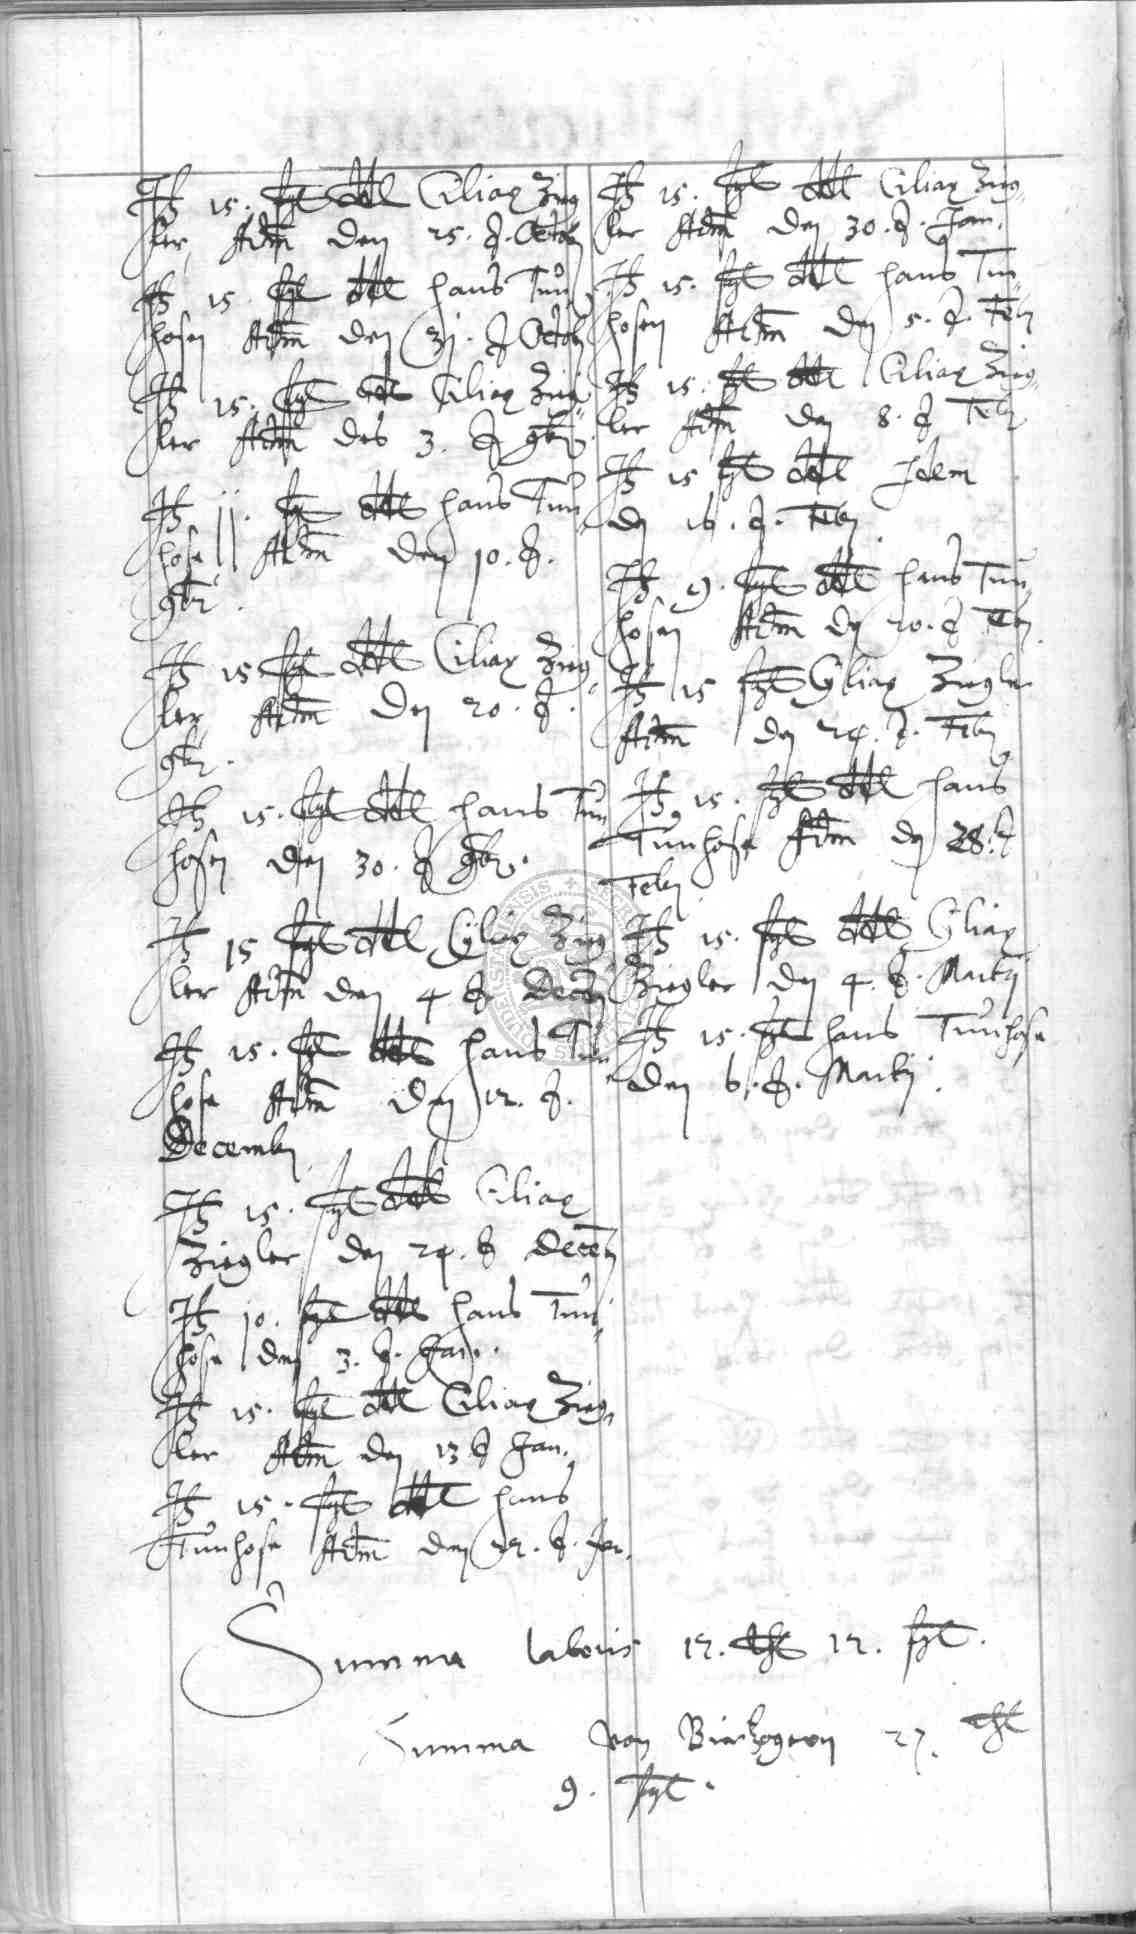 It 15. ßgl dedit Ciliax Zieg
ler Adam den 25. Octob
It 15 ßgl dedit Hans Tun
hosen Adam den 31. Octob
It 15. ßgl dedit Ciliax Zieg
ler Adam des 3. 9br
It 11. ßgl dedit Hans Tun
hose Adam den 10.
9br.
It 15 ßgl dedit Ciliax Zieg
ler Adam den 20.
9br.
It 15. ßgl dedit Hans Tun
hosen den 30. 9br.
It 15 ßgl dedit Ciliax Zieg
ler Adam den 4 Decemb
It 15. ßgl dedit Hans Tun
hose Adam den 12.
Decemb
It 15. ßgl dedit Ciliax
Ziegler den 24. Decemb
It 10. ßgl dedit Hans Tun
hose den 3. Jan.
It 15. ßgl dedit Ciliax Zieg
ler Adam den 13 Jan.
It 15. ßgl dedit Hans
Tunhose Adam den 22. Jan.
It 15. ßgl dedit Ciliax Zieg
ler Adam den 30. Jan.
It 15. ßgl dedit Hans Tun
hosen Adam den 5. Feb
It 15. ßgl dedit Ciliax Zieg
ler Adam den 8. Feb
It 15 ßgl dedit Idem
den 16. Feb
It 9. ßgl dedit Hans Tun
hosen Adam den 20. Feb
It 15 ßgl Ciliax Ziegler
Adam den 24. Feb
It 15. ßgl dedit Hans
Tunhose Adam den 28.
Feb
It 15. ßgl dedit Ciliax
Ziegler den 4. Martij
It 15. ßgl Hans Tunhose
den 6. Martij.
Summa laboris 12. thl 12. ßgl.
Summa von 27. thl
9. ßgl.